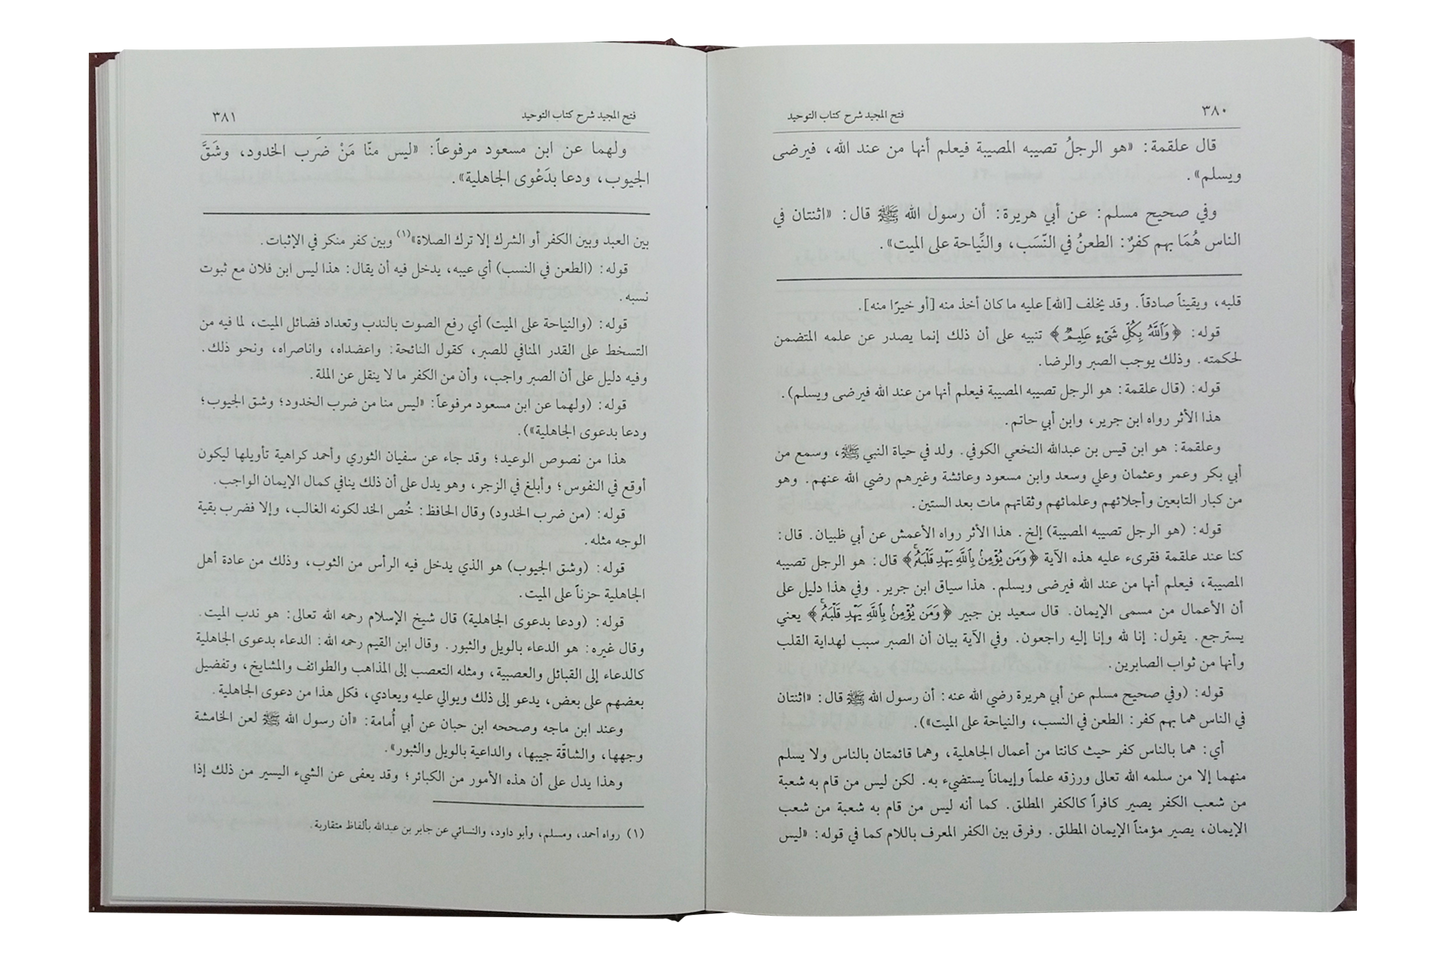 ٣٨٠ فتح المجيد شرح كتاب التوحيد
قال علقمة: «هو الرجلُ تصيبه المصيبة فيعلم أنها من عند الله، فيرضى
ويسلم».
وفي صحيح مسلم: عن أبي هريرة: أن رسول الله ﷺ قال: «اثنتان في
الناس هُمَا بهم كفرٌ: الطعنُ في النَّسَب، والنِّياحة على الميت».
قلبه، ويقيناً صادقاً. وقد يخلف [الله] عليه ما كان أخذ منه [أو خيرًا منه].
قوله: ﴿وَٱللَّهُ بِكُلِّ شَىْءٍ عَلِيمٌ﴾ تنبيه على أن ذلك إنما يصدر عن علمه المتضمن
لحكمته. وذلك يوجب الصبر والرضا.
قوله: (قال علقمة: هو الرجل تصيبه المصيبة فيعلم أنها من عند الله فيرضى ويسلم).
هذا الأثر رواه ابن جرير، وابن أبي حاتم.
وعلقمة: هو ابن قيس بن عبدالله النخعي الكوفي. ولد في حياة النبي ﷺ، وسمع من
أبي بكر وعمر وعثمان وعلي وسعد وابن مسعود وعائشة وغيرهم رضي الله عنهم. وهو
من كبار التابعين وأجلائهم وعلمائهم وثقاتهم مات بعد الستين.
قوله: (هو الرجل تصيبه المصيبة) إلخ. هذا الأثر رواه الأعمش عن أبي ظبيان. قال:
كنا عند علقمة فقرىء عليه هذه الآية ﴿وَمَن يُؤْمِنۢ بِٱللَّهِ يَهْدِ قَلْبَهُۥ﴾ قال: هو الرجل تصيبه
المصيبة، فيعلم أنها من عند الله فيرضى ويسلم. هذا سياق ابن جرير. وفي هذا دليل على
أن الأعمال من مسمى الإيمان. قال سعيد بن جبير ﴿وَمَن يُؤْمِنۢ بِٱللَّهِ يَهْدِ قَلْبَهُۥ﴾ يعني
يسترجع. يقول: إنا لله وإنا إليه راجعون. وفي الآية بيان أن الصبر سبب لهداية القلب
وأنها من ثواب الصابرين.
قوله: (وفي صحيح مسلم عن أبي هريرة رضي الله عنه: أن رسول الله ﷺ قال: «اثنتان
في الناس هما بهم كفر: الطعن في النسب، والنياحة على الميت»).
أي: هما بالناس كفر حيث كانتا من أعمال الجاهلية، وهما قائمتان بالناس ولا يسلم
منهما إلا من سلمه الله تعالى ورزقه علماً وإيماناً يستضيء به. لكن ليس من قام به شعبة
من شعب الكفر يصير كافراً كالكفر المطلق. كما أنه ليس من قام به شعبة من شعب
الإيمان، يصير مؤمناً الإيمان المطلق. وفرق بين الكفر المعرف باللام كما في قوله: «ليس
فتح المجيد شرح كتاب التوحيد ٣٨١
ولهما عن ابن مسعود مرفوعاً: «ليس منّا مَنْ ضرَب الخدود، وشَقَّ
الجيوب، ودعا بدَعْوى الجاهلية».
بين العبد وبين الكفر أو الشرك إلا ترك الصلاة»(١) وبين كفر منكر في الإثبات.
قوله: (الطعن في النسب) أي عيبه، يدخل فيه أن يقال: هذا ليس ابن فلان مع ثبوت
نسبه.
قوله: (والنياحة على الميت) أي رفع الصوت بالندب وتعداد فضائل الميت، لما فيه من
التسخط على القدر المنافي للصبر، كقول النائحة: واعضداه، واناصراه، ونحو ذلك.
وفيه دليل على أن الصبر واجب، وأن من الكفر ما لا ينقل عن الملة.
قوله: (ولهما عن ابن مسعود مرفوعاً: «ليس منا من ضرب الخدود؛ وشق الجيوب؛
ودعا بدعوى الجاهلية»).
هذا من نصوص الوعيد؛ وقد جاء عن سفيان الثوري وأحمد كراهية تأويلها ليكون
أوقع في النفوس؛ وأبلغ في الزجر، وهو يدل على أن ذلك ينافي كمال الإيمان الواجب.
قوله: (من ضرب الخدود) وقال الحافظ: خُص الخد لكونه الغالب، وإلا فضرب بقية
الوجه مثله.
قوله: (وشق الجيوب) هو الذي يدخل فيه الرأس من الثوب، وذلك من عادة أهل
الجاهلية حزناً على الميت.
قوله: (ودعا بدعوى الجاهلية) قال شيخ الإسلام رحمه الله تعالى: هو ندب الميت.
وقال غيره: هو الدعاء بالويل والثبور. وقال ابن القيم رحمه الله: الدعاء بدعوى الجاهلية
كالدعاء إلى القبائل والعصبية، ومثله التعصب إلى المذاهب والطوائف والمشايخ، وتفضيل
بعضهم على بعض، يدعو إلى ذلك ويوالي عليه ويعادي، فكل هذا من دعوى الجاهلية.
وعند ابن ماجه وصححه ابن حبان عن أبي أُمامة: «أن رسول الله ﷺ لعن الخامشة
وجهها، والشاقّة جيبها، والداعية بالويل والثبور».
وهذا يدل على أن هذه الأمور من الكبائر؛ وقد يعفى عن الشيء اليسير من ذلك إذا
(١) رواه أحمد، ومسلم، وأبو داود، والنسائي عن جابر بن عبدالله بألفاظ متقاربة.